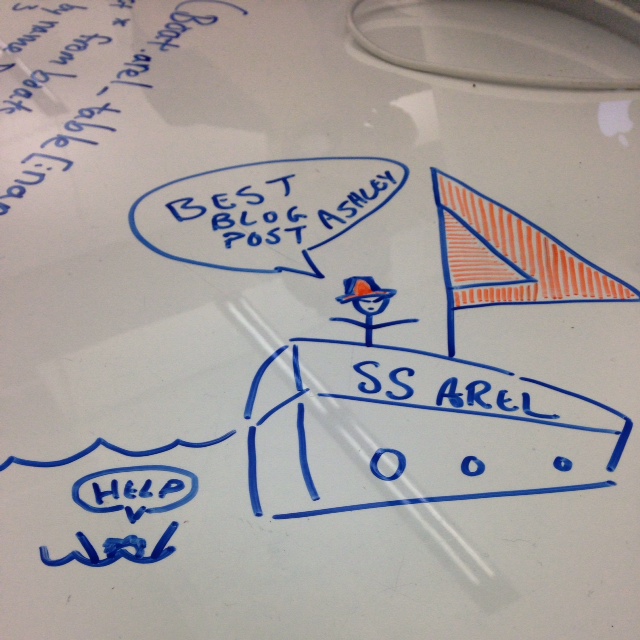 Boat.arel_table[:nam
* from boat
by name
BEST
BLOG
POST ASHLEY
SS AREL
HELP